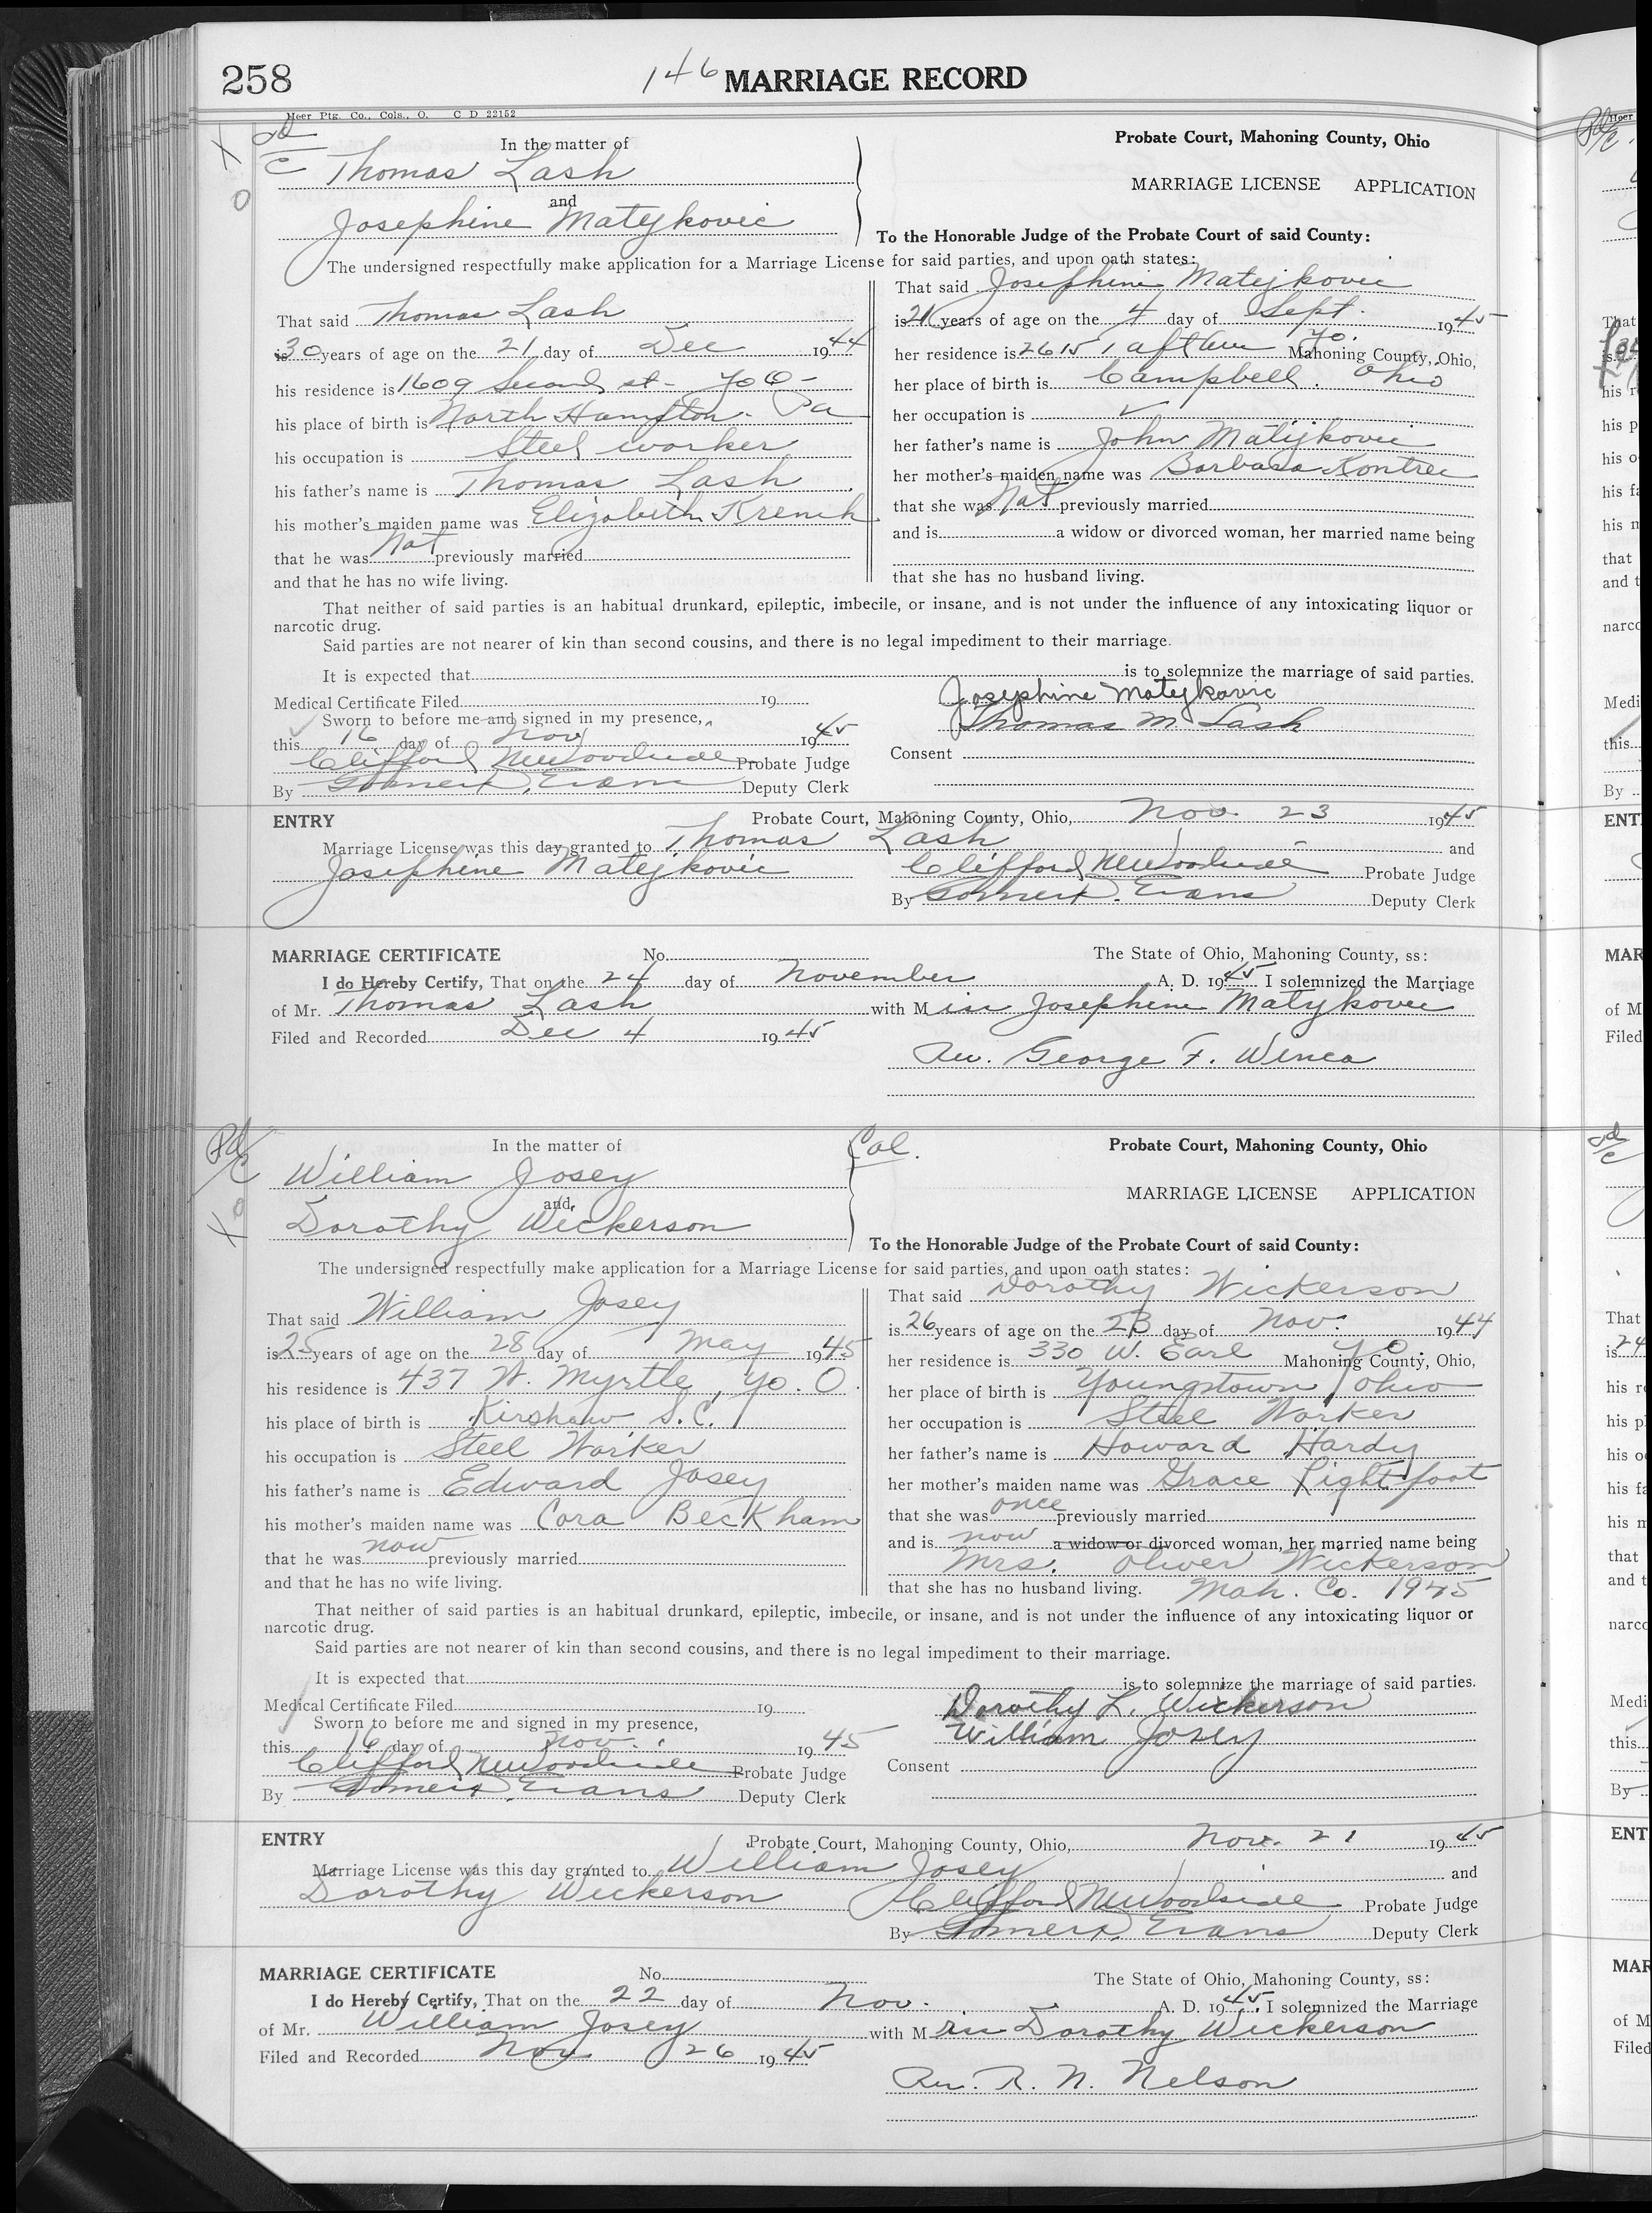 258 146 MARRIAGE RECORD
Heer Ptg. Co., Cols., O. C D 22152
In the matter of
Thomas Lash
and
Josephine Matejkovic
Probate Court, Mahoning County, Ohio
MARRIAGE LICENSE APPLICATION
To the Honorable Judge of the Probate Court of said County:
The undersigned respectfully make application for a Marriage License for said parties, and upon oath states:
That said Thomas Lash
is 30 years of age on the 21 day of Dec 1944
his residence is 1609 Second st - Yo O -
his place of birth is North Hampton - Pa
his occupation is Steel worker
his father's name is Thomas Lash
his mother's maiden name was Elizabeth Krenik
that he was Not previously married
and that he has no wife living.
That said Josephine Matejkovic
is 21 years of age on the 4 day of Sept. 1945
her residence is 2615 Taft Ave Yo. Mahoning County, Ohio,
her place of birth is Campbell. Ohio
her occupation is ✓
her father's name is John Matejkovic
her mother's maiden name was Barbara Kontrec
that she was Not previously married
and is a widow or divorced woman, her married name being
that she has no husband living.
That neither of said parties is an habitual drunkard, epileptic, imbecile, or insane, and is not under the influence of any intoxicating liquor or
narcotic drug.
Said parties are not nearer of kin than second cousins, and there is no legal impediment to their marriage.
It is expected that is to solemnize the marriage of said parties.
Medical Certificate Filed 19
Josephine Matejkovic
Sworn to before me and signed in my presence,
Thomas M. Lash
this 16 day of Nov 1945
Consent
Clifford M Woodside Probate Judge
By Evans Deputy Clerk
ENTRY Probate Court, Mahoning County, Ohio, Nov. 23 1945
Marriage License was this day granted to Thomas Lash and
Josephine Matejkovic Clifford M Woodside Probate Judge
By Evans Deputy Clerk
MARRIAGE CERTIFICATE No. The State of Ohio, Mahoning County, ss:
I do Hereby Certify, That on the 24 day of November A. D. 1945 I solemnized the Marriage
of Mr. Thomas Lash with Miss Josephine Matejkovic
Filed and Recorded Dec 4 1945
Rev. George F. Winca
Pd/C
In the matter of
William Josey
and
Dorothy Wickerson
Col.
Probate Court, Mahoning County, Ohio
MARRIAGE LICENSE APPLICATION
To the Honorable Judge of the Probate Court of said County:
The undersigned respectfully make application for a Marriage License for said parties, and upon oath states:
That said William Josey
is 25 years of age on the 28 day of May 1945
his residence is 437 W. Myrtle, Yo. O.
his place of birth is Kirshaw S.C.
his occupation is Steel Worker
his father's name is Edward Josey
his mother's maiden name was Cora Beckham
that he was now previously married
and that he has no wife living.
That said Dorothy Wickerson
is 26 years of age on the 23 day of Nov. 1944
her residence is 330 W. Earl Yo. Mahoning County, Ohio,
her place of birth is Youngstown, Ohio
her occupation is Steel Worker
her father's name is Howard Hardy
her mother's maiden name was Grace Lightfoot
that she was once previously married
and is now a widow or divorced woman, her married name being
Mrs. Oliver Wickerson
that she has no husband living. Mah. Co. 1945
That neither of said parties is an habitual drunkard, epileptic, imbecile, or insane, and is not under the influence of any intoxicating liquor or
narcotic drug.
Said parties are not nearer of kin than second cousins, and there is no legal impediment to their marriage.
It is expected that is to solemnize the marriage of said parties.
Medical Certificate Filed 19
Dorothy L. Wickerson
Sworn to before me and signed in my presence,
William Josey
this 16 day of Nov. 1945
Consent
Clifford M Woodside Probate Judge
By Evans Deputy Clerk
ENTRY Probate Court, Mahoning County, Ohio, Nov. 21 1945
Marriage License was this day granted to William Josey and
Dorothy Wickerson Clifford M Woodside Probate Judge
By Evans Deputy Clerk
MARRIAGE CERTIFICATE No. The State of Ohio, Mahoning County, ss:
I do Hereby Certify, That on the 22 day of Nov. A. D. 1945 I solemnized the Marriage
of Mr. William Josey with Mrs Dorothy Wickerson
Filed and Recorded Nov 26 1945
Rev. R. N. Nelson